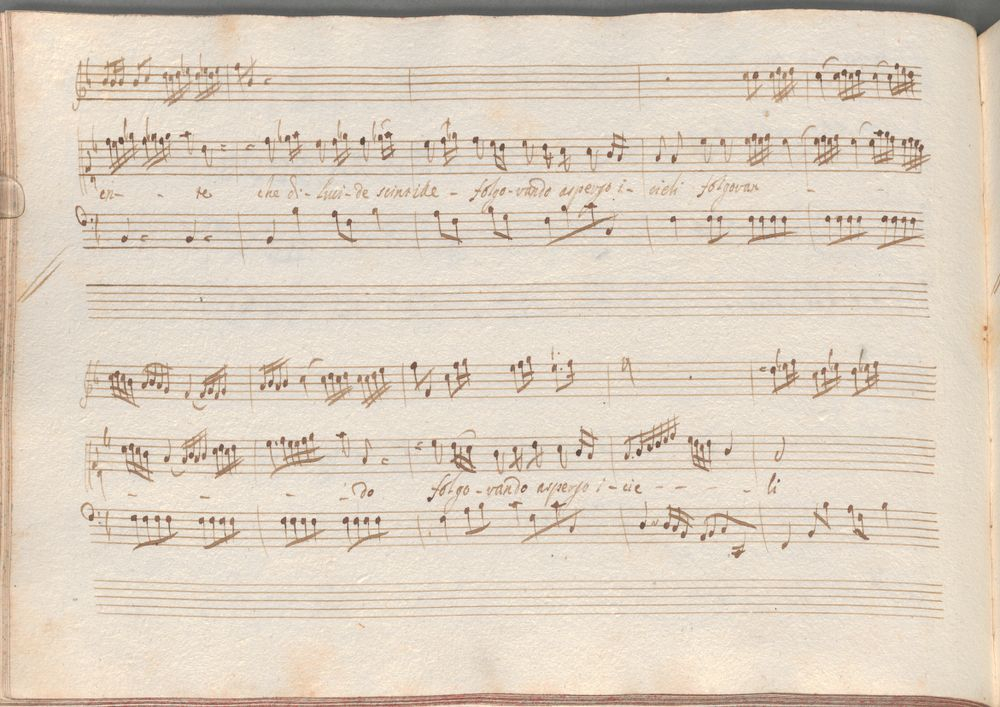 en - - te che di - luci - de scintille - folgo - rando asperso i - cieli folgoran - - -
- - - - do folgo - rando asperso i - cie - - - - li